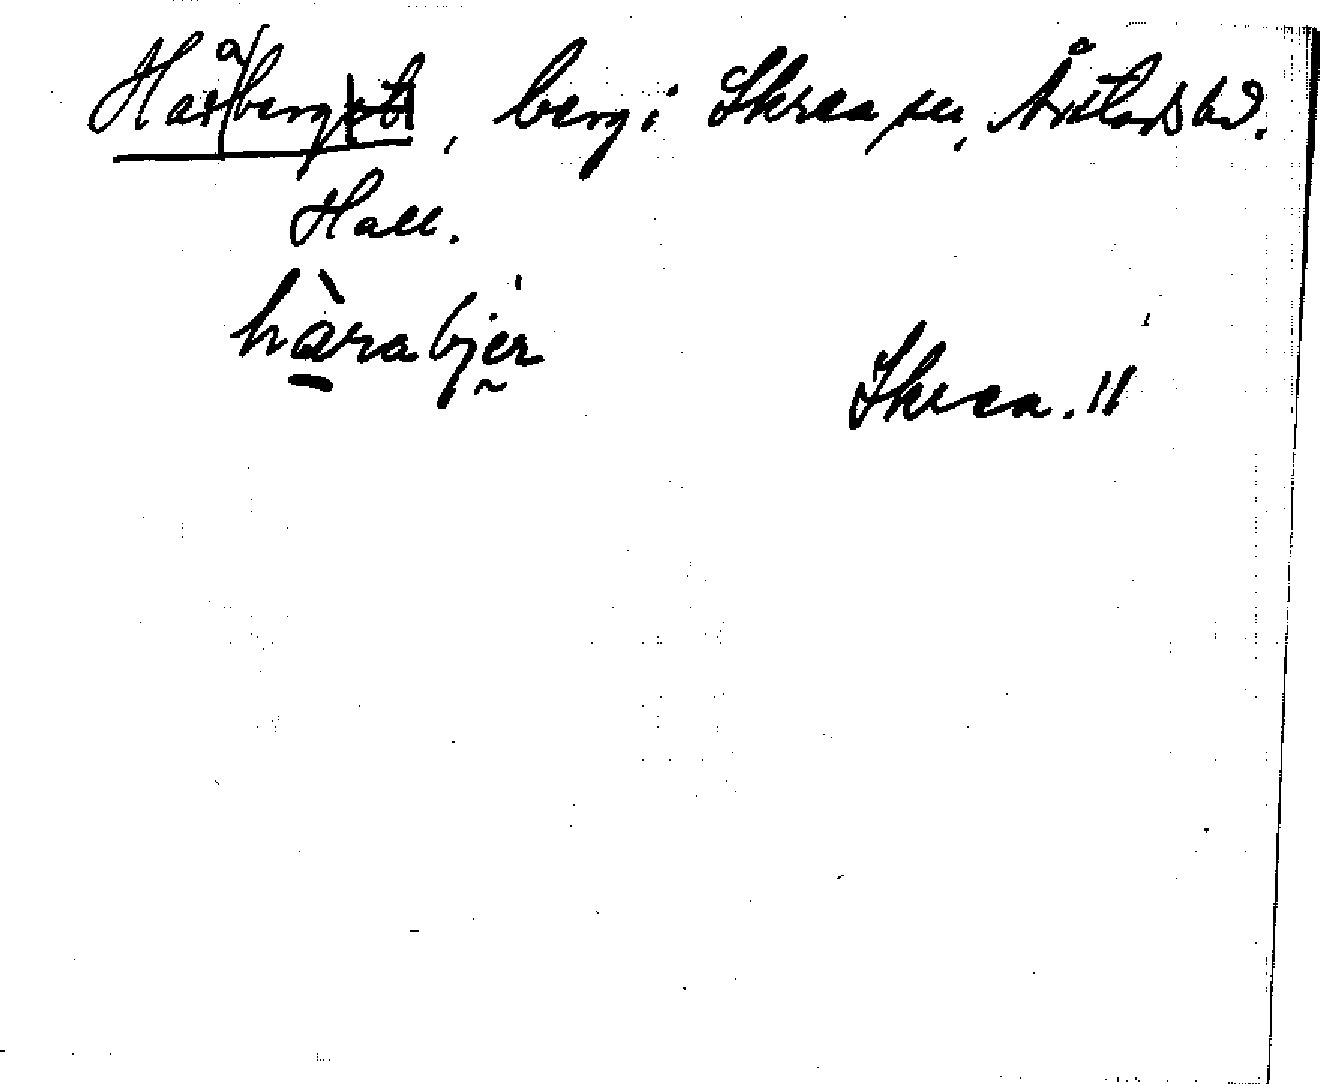 Haraberg, berg i Skrea sn, Årstads hd.
Hall.
hàrabjer
Skrea. 11